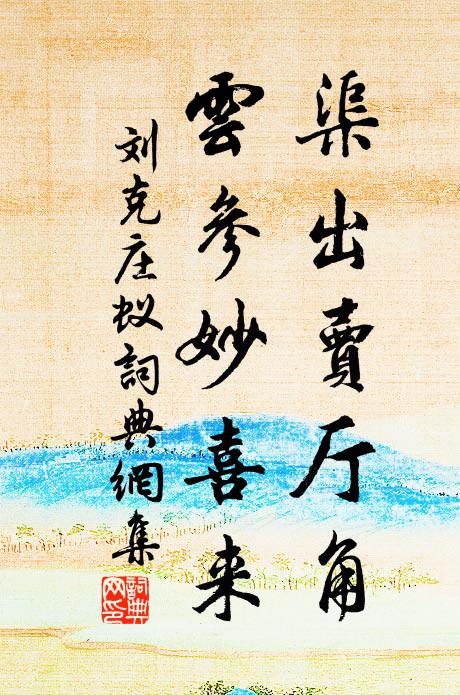 渠出賣厅角
雲參妙喜来
刘克庄蚁詞典網集
詞典网印